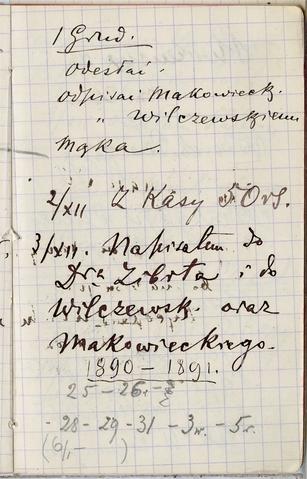 1 Grud.
odesłai.
odpisai Makowieck.
" Wilczewskiemu
Mąka.
2/XII Z Kasy 5 Ors.
3/XII. Napisałem do
Dra Zibrta i do
Wilczewsk. oraz
Makowieckiego.
1890-1891.
25-26-
-28-29-31-3w.-5r.
(6/,- )